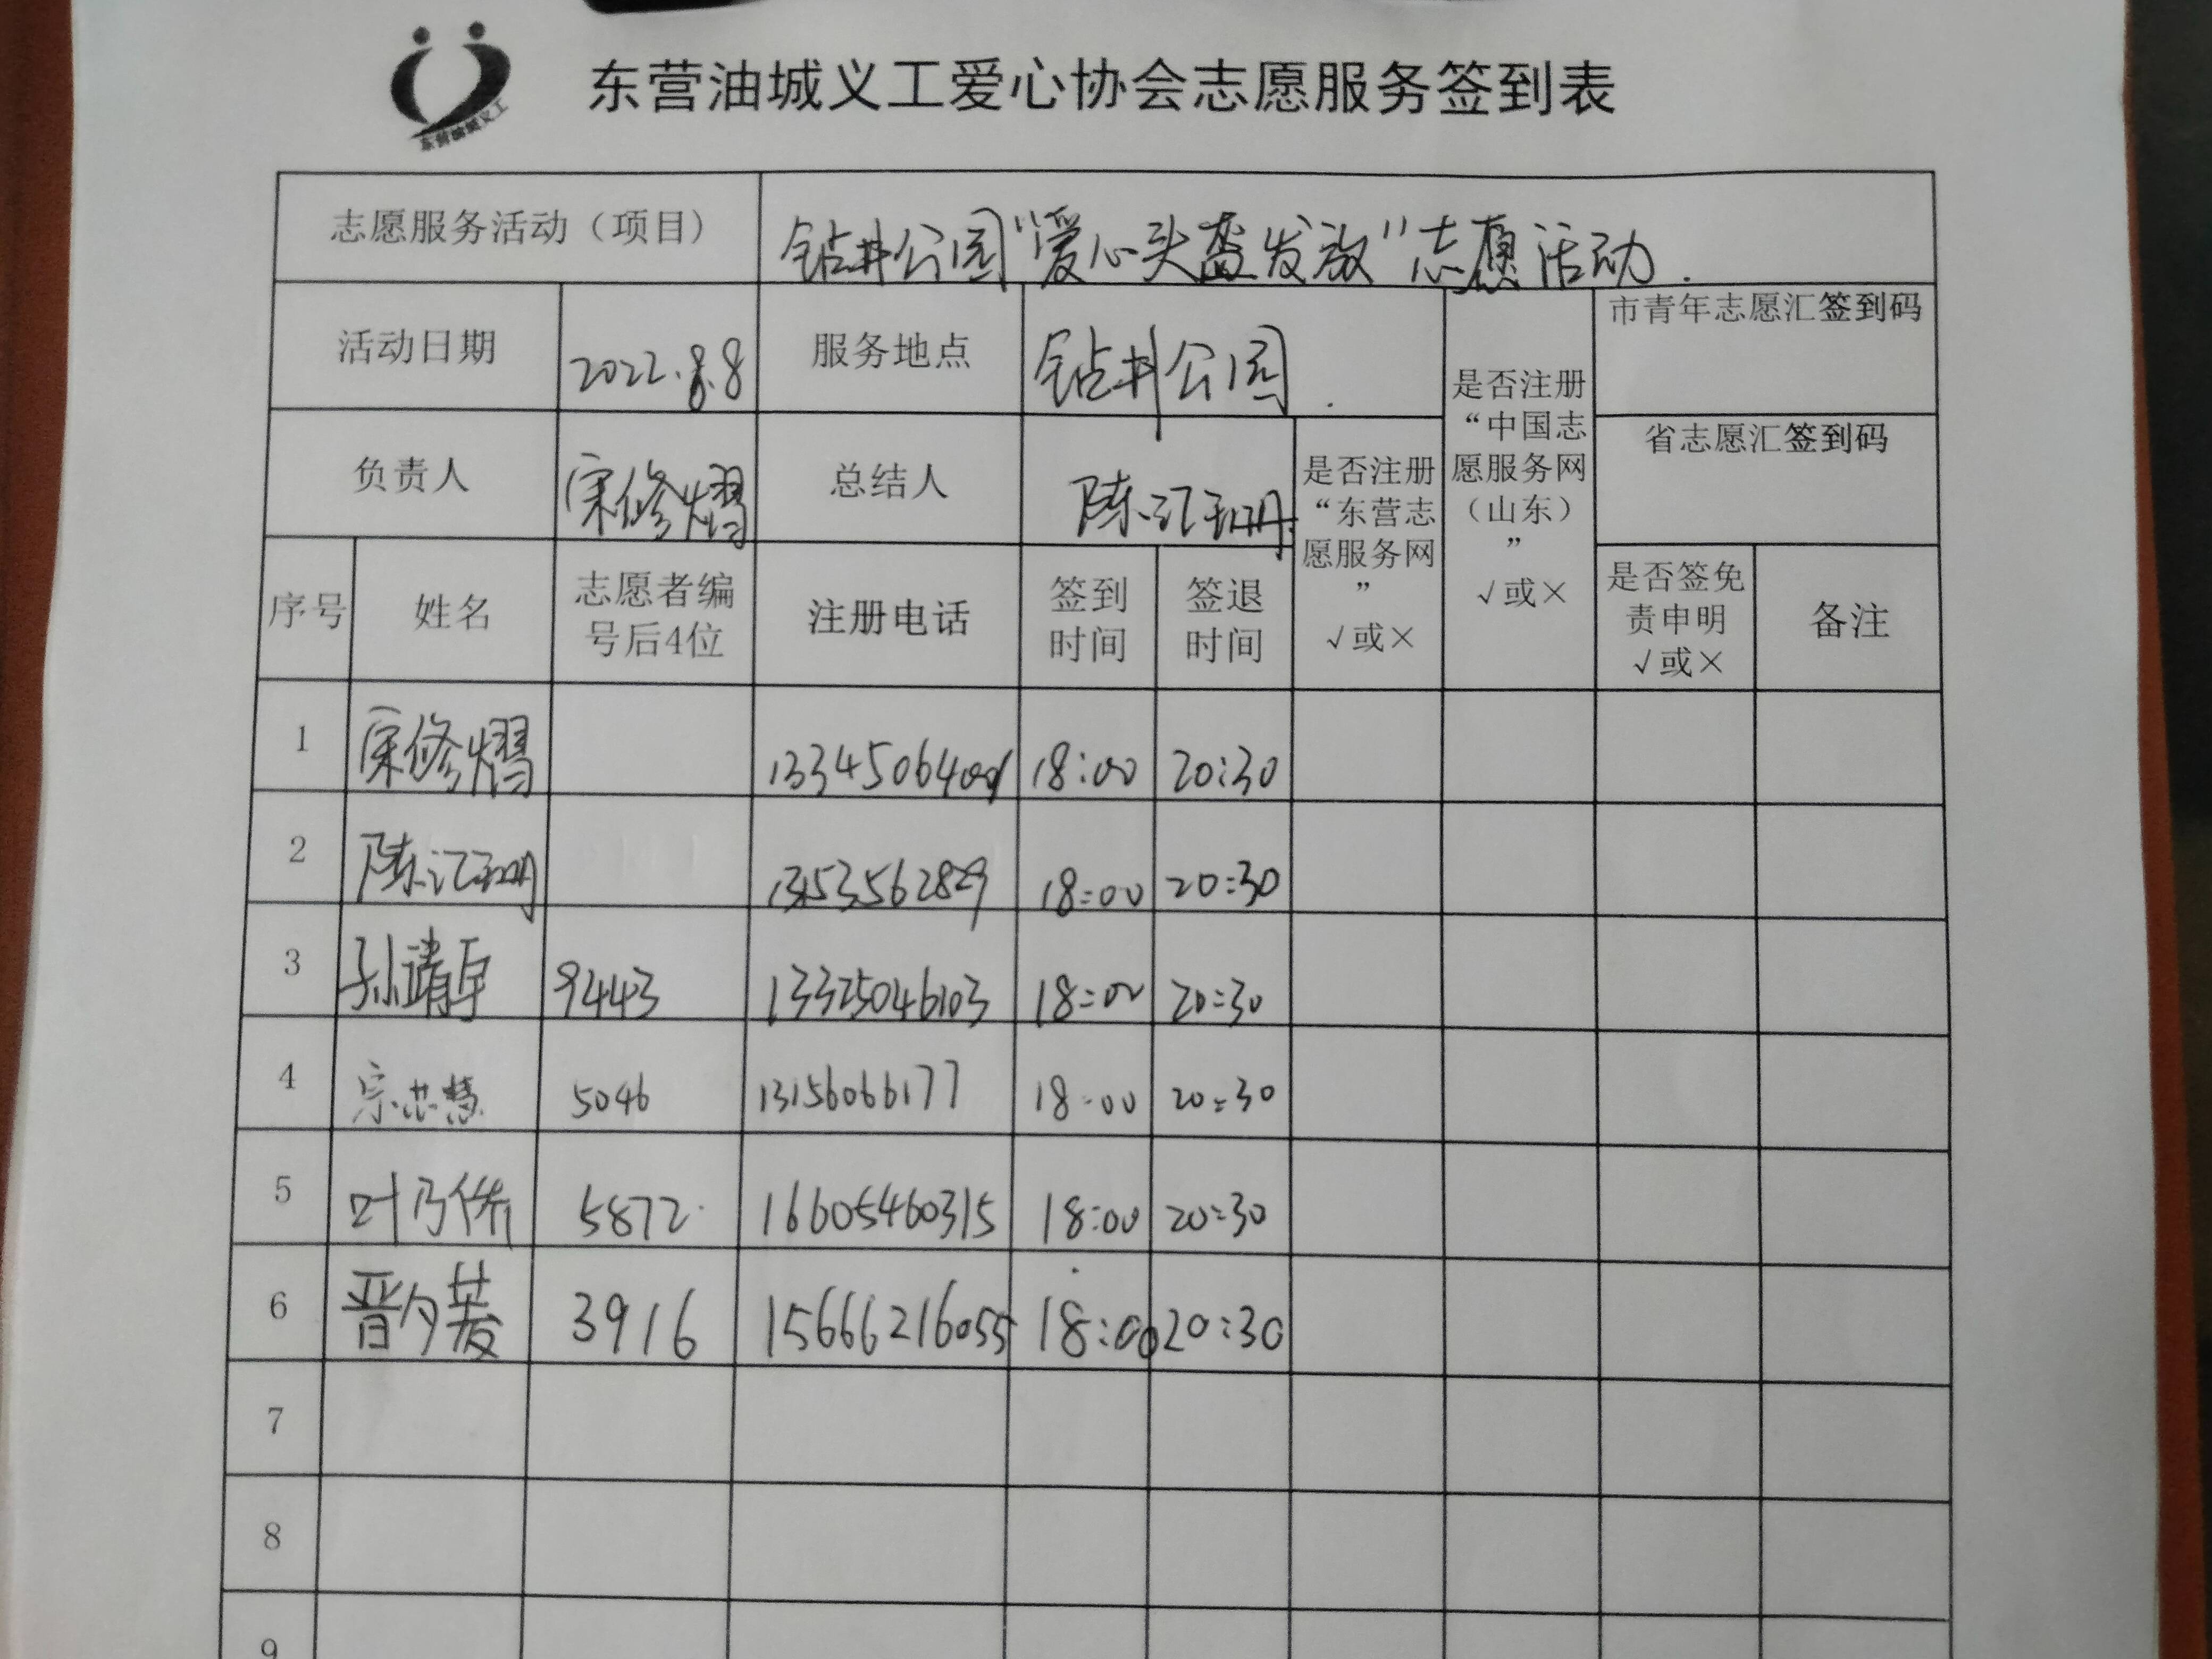 东营油城义工
东营油城义工爱心协会志愿服务签到表
志愿服务活动（项目） 钻井公园“爱心头盔发放”志愿活动.
活动日期 2022.8.8 服务地点 钻井公园.
是否注册“中国志愿服务网（山东）” √或×
市青年志愿汇签到码
省志愿汇签到码
负责人 宋修熠 总结人 陈汇珊
是否注册“东营志愿服务网” √或×
序号 姓名 志愿者编号后4位 注册电话 签到时间 签退时间 是否签免责申明 √或× 备注
1 宋修熠 18:00 20:30
2 陈汇珊 13153562829 18:00 20:30
3 孙靖 9443 13325046103 18:00 20:30
4 宗芯慧 5046 13156066177 18:00 20:30
5 叶乃侨 5872 16605460315 18:00 20:30
6 晋夕菱 3916 15666216055 18:00 20:30
7
8
9